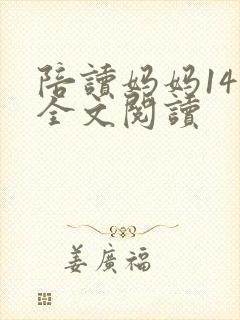 陪讀媽媽14
全文閱讀
姜廣福